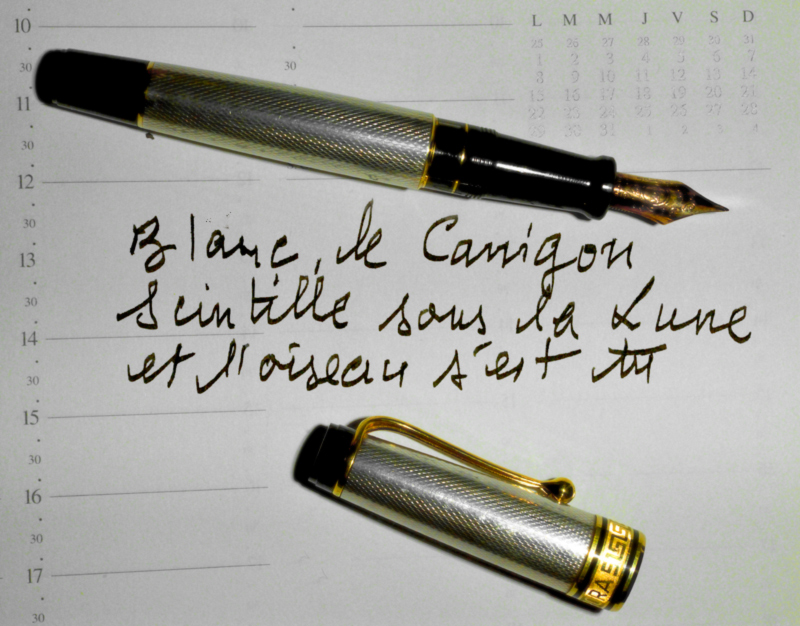 10
L M M J V S D
25 26 27 28 29 30 31
1 2 3 4 5 6 7
8 9 10 11 12 13 14
15 16 17 18 19 20 21
22 23 24 25 26 27 28
29 30 31 1 2 3 4
30
30
11
30
12
30
Blanc, le Canigou
13
scintille sous la Lune
30
14
et l'oiseau s'est tu
30
15
30
16
30
17
30